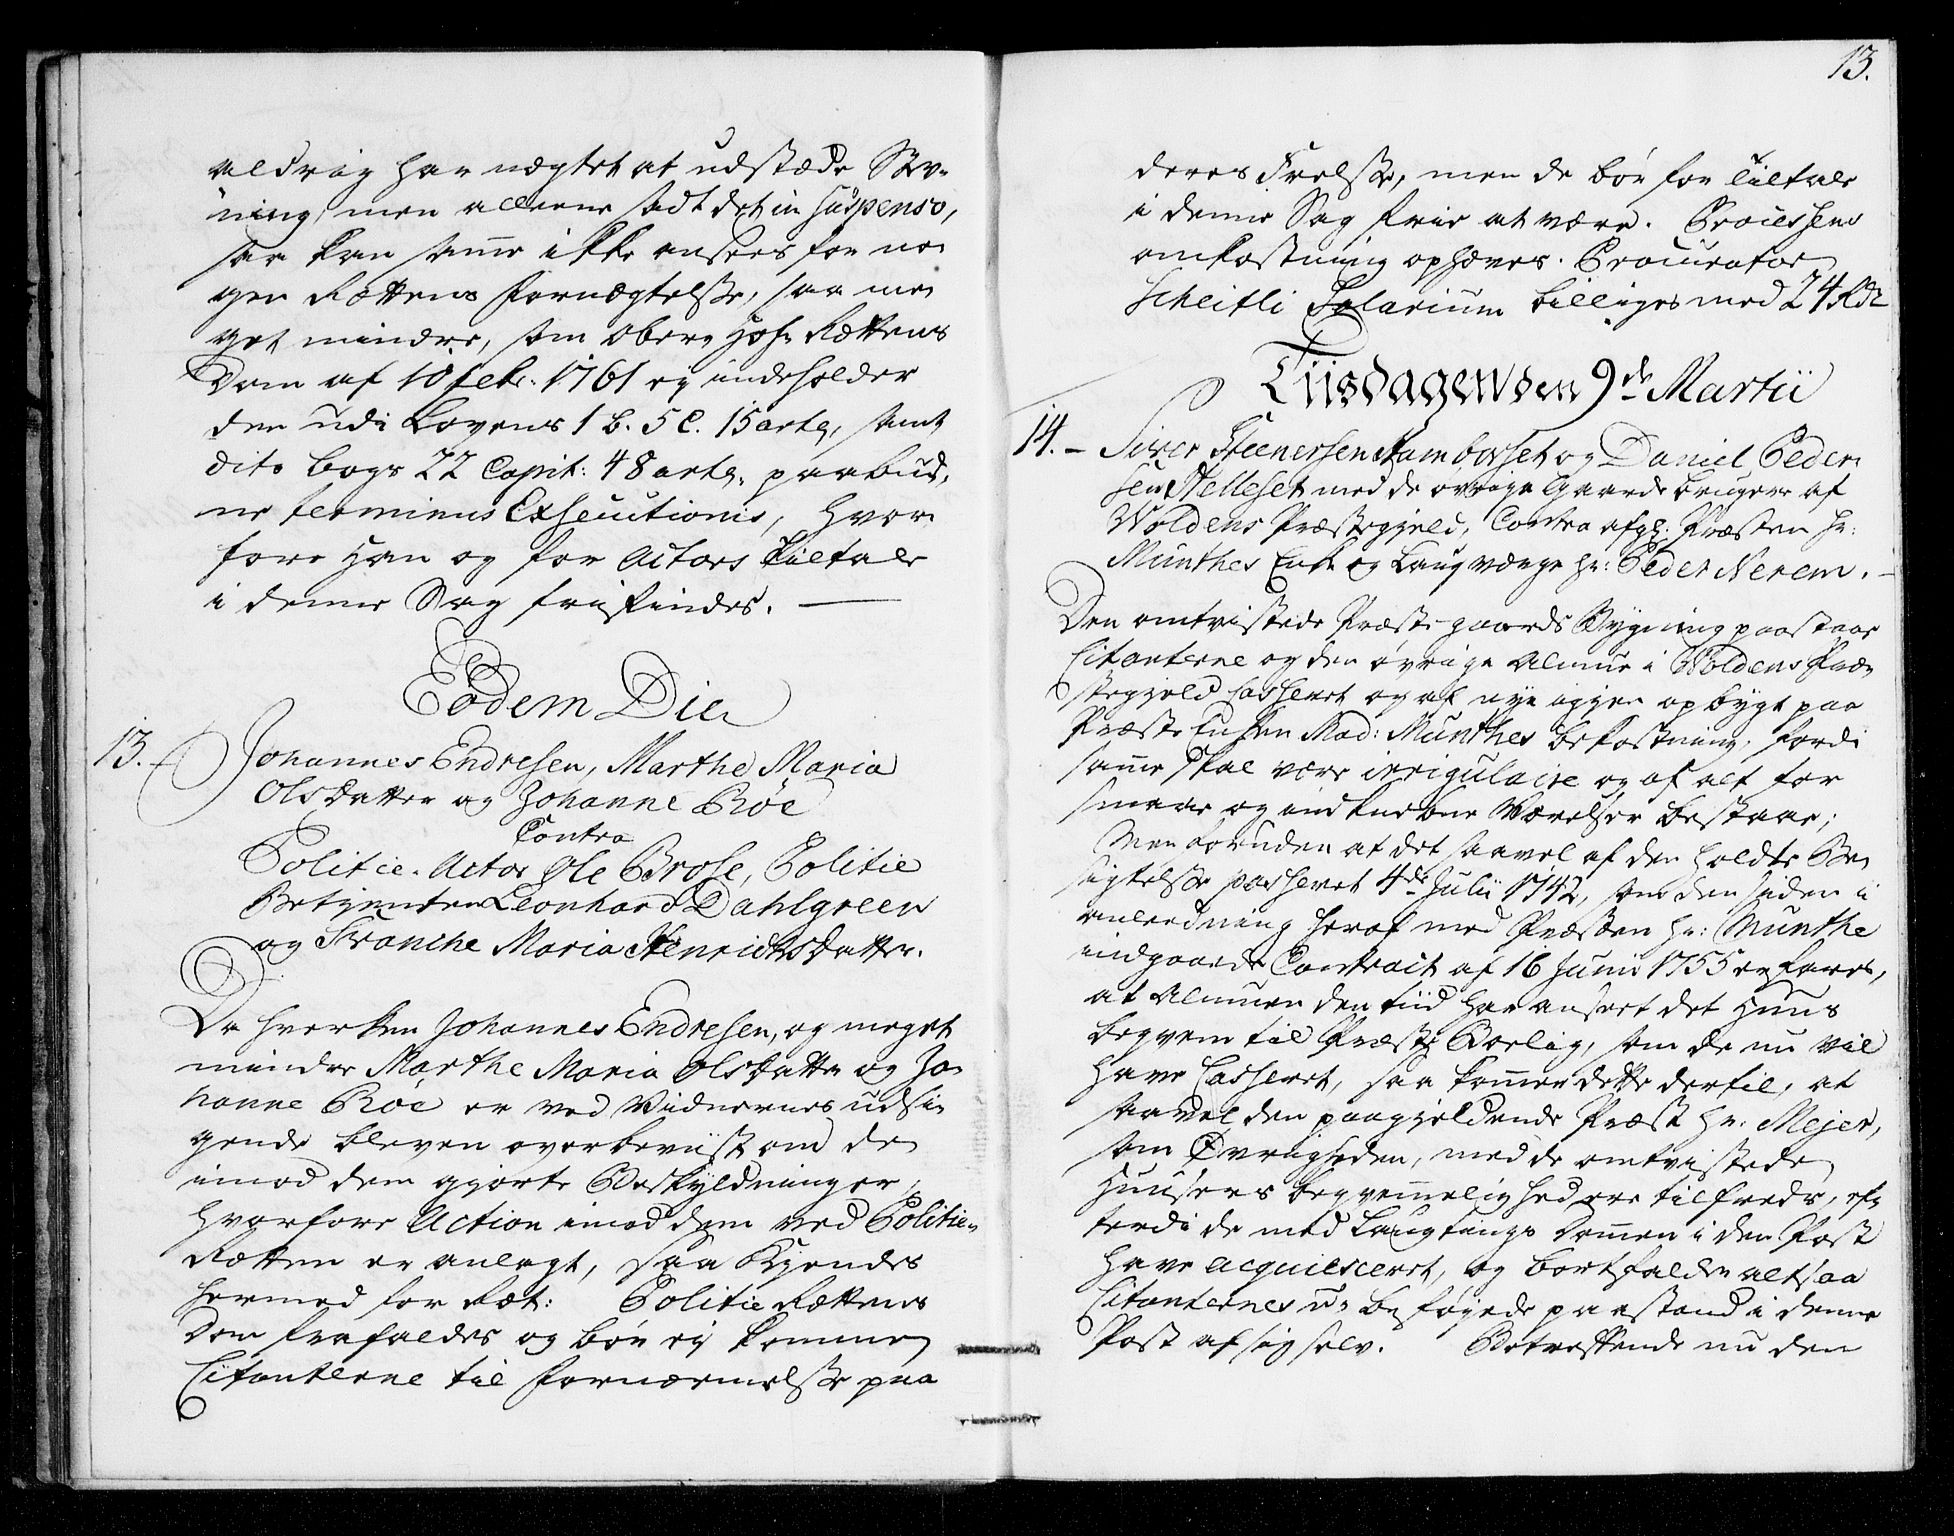 aldrig har nægtet at udstæde Skiø-
ning, men alleene sadt det in suspenso,
saa kan same ikke ansees for no-
gen Rettens fornægtelse, saa me-
get mindre, som Over Hof Rettens
Dom af 10 febr. 1761 ey indeholder
den udi Lovens 1 B. 5 C. 15 artl, samt
dito Bogs 22 Capit: 48 artl. paabud-
ne terminus Exsecutionis, hvor-
fore Han og for Actors tiltale
i denne Sag frifindes.
Eodem Die
13. Johannes Endresen, Marthe Maria
Olsdatter og Johanne Röe
Contra
Politie-Actor Ole Brose, Politie
Betienten Leonhard Dahlgreen
og Franche Maria Henrichsdatter.
Da hverken Johannes Endresen, og meget
mindre Marthe Maria Olsdatter og Jo-
hanne Röe er ved Vidnernes udsi-
gende bleven overbeviist om de
imod dem giorte Beskyldninger,
hvorfore Action imod dem ved Politie-
Retten er anlagt, saa Kiendes
hermed for Ret: Politie Rettens
Dom frafaldes og bør ey komme
Citanterne til fornærmelse paa
13.
deres Frelse, men de bör for Tiltale
i denne Sag frie at være. Processens
omkostning ophæves. Procurator
Scheitli Salarium billiges med 24 Rdr
Tiisdagen den 9de Martii
14. - Siver Steenersen Hamborset og Daniel Peder-
sen Helleset med de øvrige Gaarde brugere af
Woldens Præstegield, Contra afgl. Præsten Hr:
Munthes Enke og Laugværge Hr: Peder Nerem.
Den omtvistede Præste gaards Bygning paastaar
Citanterne og den øvrige Almue i Woldens Præ-
stegield Casseret og af nye igien opbygt paa
Præste Enken Mad: Munthes bekostning, fordi
same skal være irrigulaire og af alt for
smaae og indknebne Værelser bestaar;
Men foruden at det saavel af den holdte Be-
sigtelse passeret 4de Julii 1742, som den siden i
anledning heraf med Præsten Hr: Munthe
indgaaede Contract af 16 Junii 1755 erfares,
at Almuen den tiid har anseet det Huus
beqvem til Præste Boelig, som de nu vil
have Casseret, saa komer dette dertil, at
saavel den paagieldende Præst Hr: Mejer,
som Øvrigheden, med de omtvistede
Huusers beqvemelighed ere tilfreds, ef-
terdi de med Laugtings Domen i den Post
have acquiesceret, og bortfalder altsaa
Citanternes u-beføyede paastand i denne
Post af sig selv. Betreffende nu den